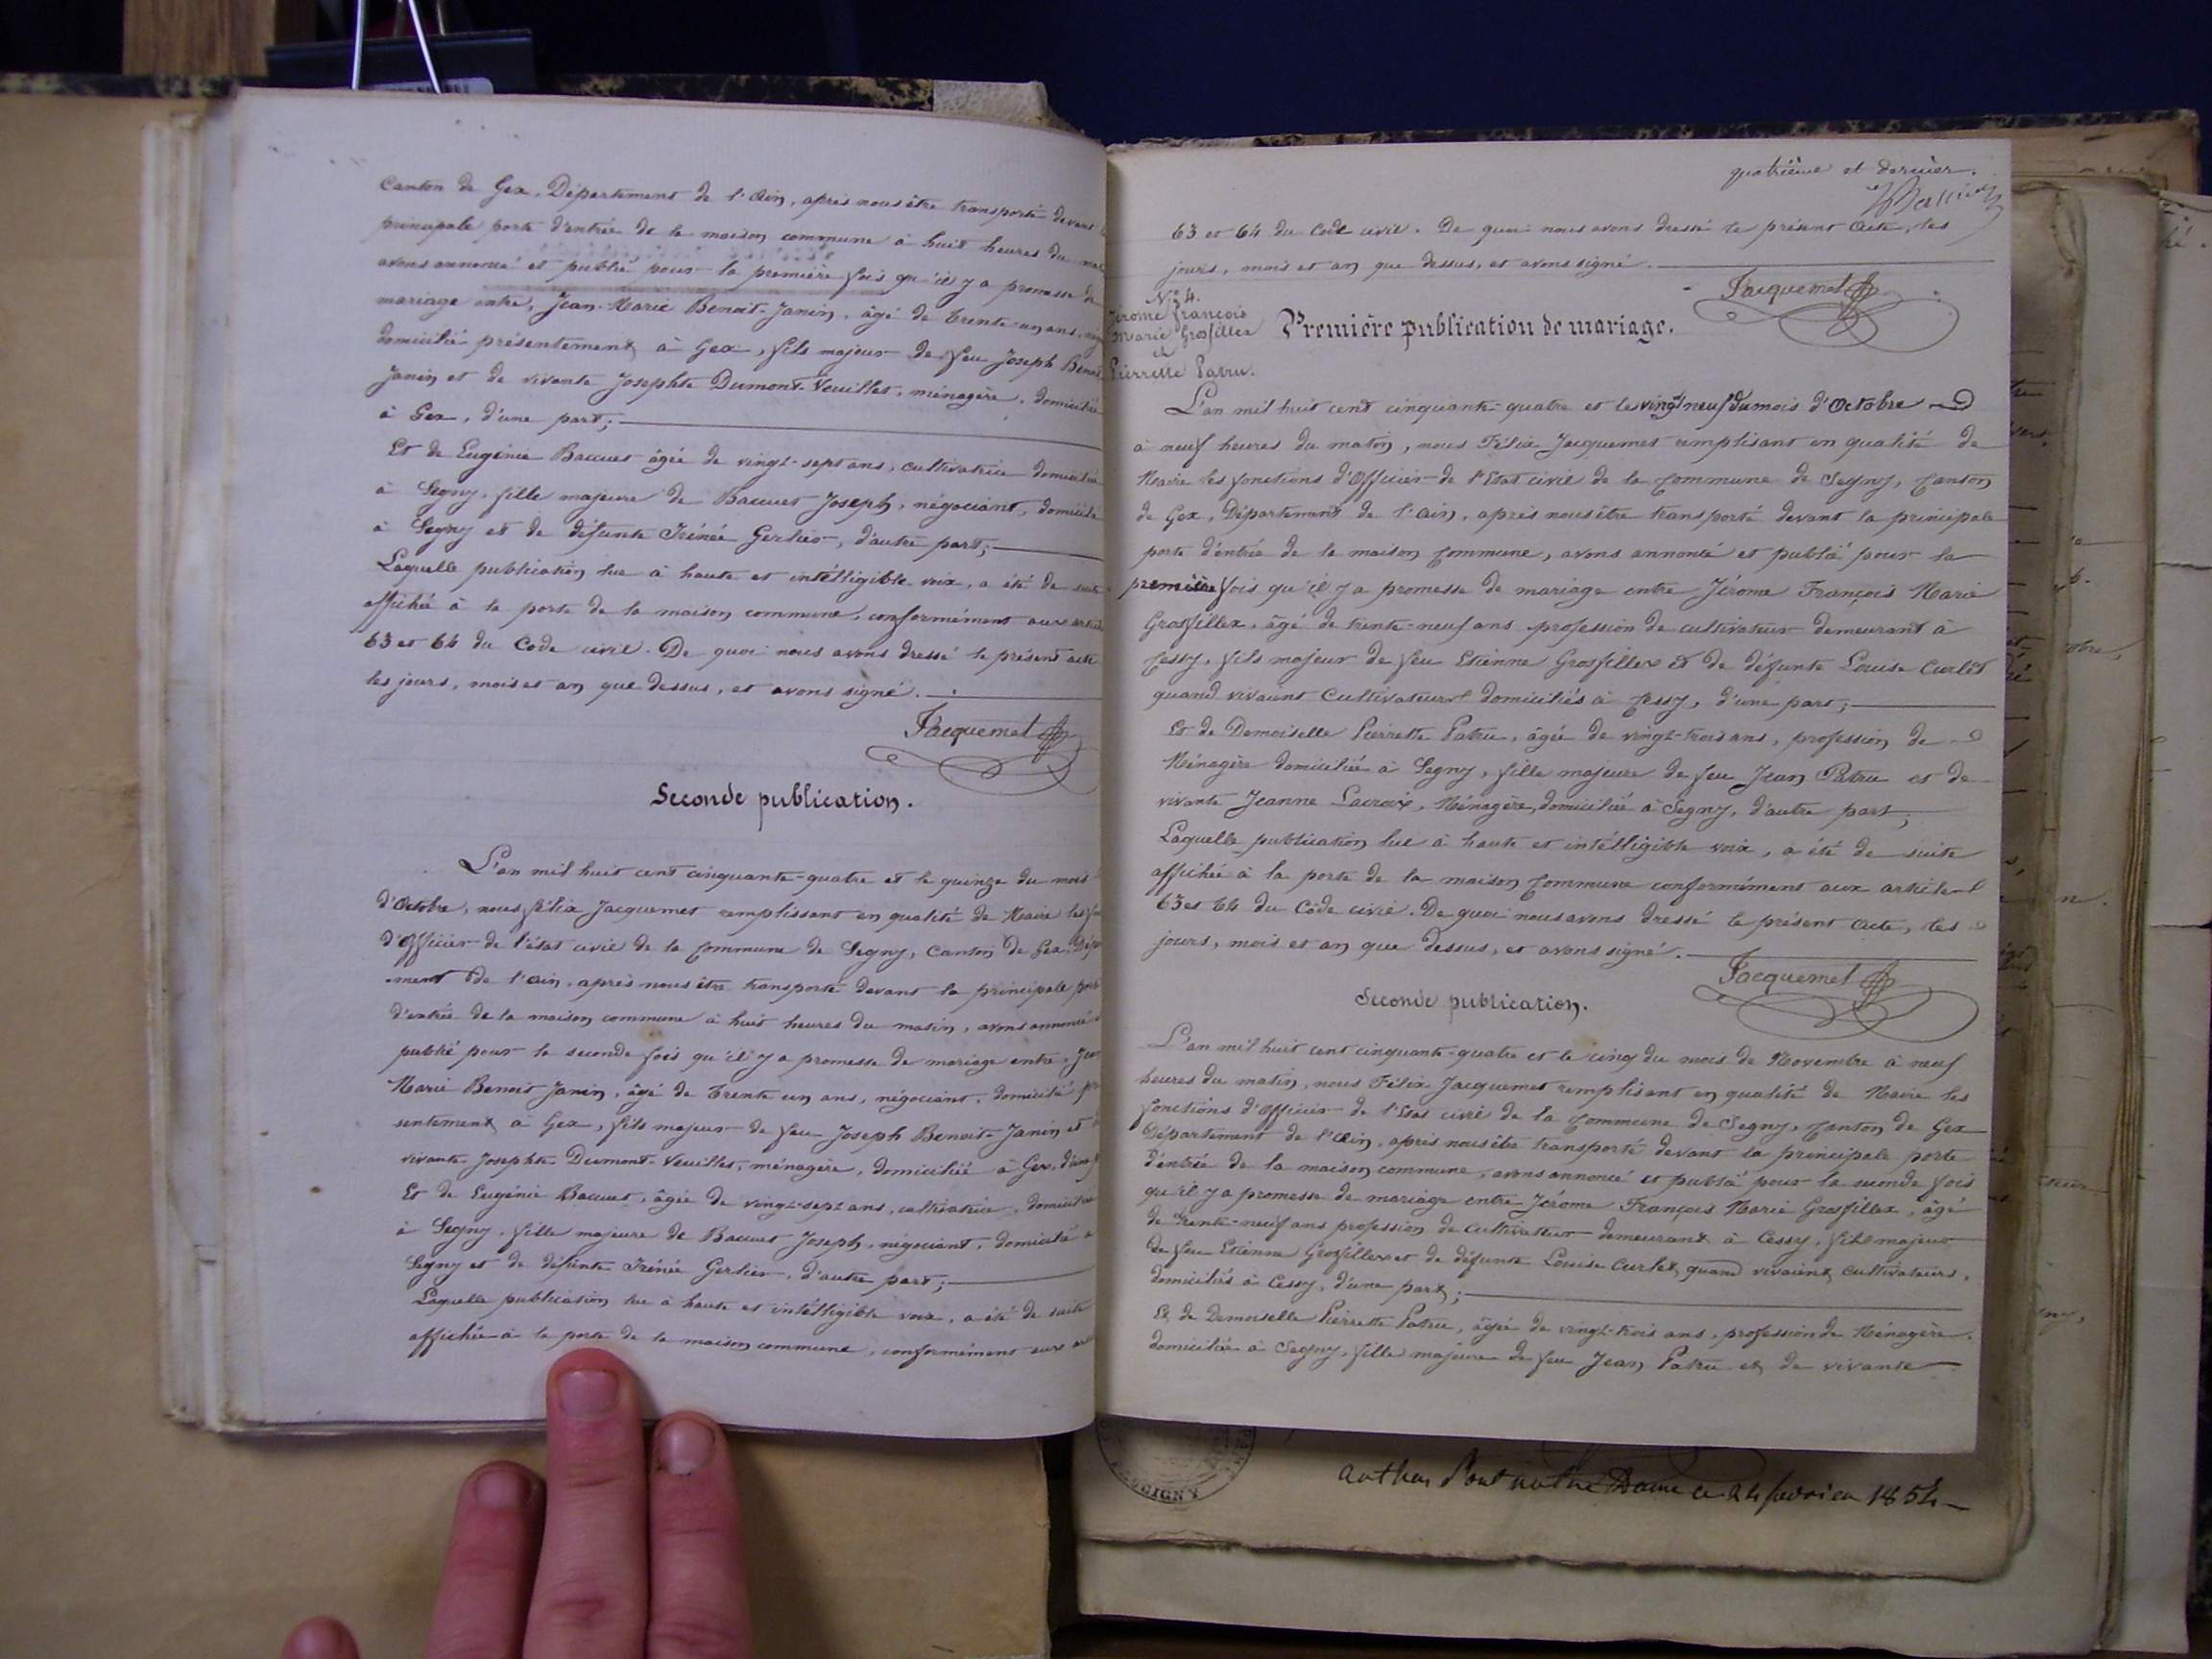 Canton de Gex, Département de l'Ain, après nous être transporté devant
principale porte d'entrée de la maison commune à huit heures du
avons annoncé et publié pour la première fois qu'il y a promesse de
mariage entre, Jean-Marie Benoit-Janin, âgé de trente-un ans,
domicilié présentement à Gex, fils majeur de feu Joseph Benoit
Janin et de vivante Josephte Dumont-Veuillet, ménagère, domiciliée
à Gex, d'une part;
Et de Eugénie Baccuet âgée de vingt-sept ans, cultivatrice domiciliée
à Segny, fille majeure de Baccuet Joseph, négociant, domicilié
à Segny et de défunte Irénée Gerlier, d'autre part;
Laquelle publication lue à haute et intélligible voix, a été de suite
affichée à la porte de la maison commune, conformément aux
63 et 64 du Code civil. De quoi nous avons dressé le présent acte
les jours, mois et an que dessus, et avons signé.
Jacquemet
Seconde publication.
L'an mil huit cent cinquante-quatre et le quinze du mois
d'Octobre, nous félix Jacquemet remplissant en qualité de Maire les
d'Officier de l'état civil de la Commune de Segny, Canton de Gex,
-ment de l'Ain, après nous être transporté devant la principale porte
d'entrée de la maison commune à huit heures du matin, avons annoncé
publié pour la seconde fois qu'il y a promesse de mariage entre Jean
Marie Benoit Janin, âgé de trente un ans, négociant, domicilié
sentement à Gex, fils majeur de feu Joseph Benoit-Janin et
vivante Josephte Dumont-Veuillet, ménagère, domiciliée à Gex, d'une
Et de Eugénie Baccuet, âgée de vingt-sept ans, cultivatrice, domiciliée
à Segny, fille majeure de Baccuet Joseph, négociant, domicilié à
Segny et de défunte Irénée Gerlier, d'autre part;
Laquelle publication lue à haute et intélligible voix, a été de suite
affichée à la porte de la maison commune, conformément aux
quatrième et dernier.
63 et 64 du Code civil. De quoi nous avons dressé le présent acte, les
jours, mois et an que dessus, et avons signé.
Jacquemet
N° 4.
Jérome François
Marie Grosfillex
et
Pierrette Patru.
Première publication de mariage.
L'an mil huit cent cinquante-quatre et le vingt neuf du mois d'Octobre
à neuf heures du matin, nous Félix Jacquemet remplisant en qualité de
Maire les fonctions d'Officier de l'Etat civil de la Commune de Segny, Canton
de Gex, Département de l'Ain, après nous être transporté devant la principale
porte d'entrée de la maison Commune, avons annoncé et publié pour la
première fois qu'il y a promesse de mariage entre Jérome François Marie
Grosfillex, âgé de trente-neuf ans profession de cultivateur demeurant à
Cessy, fils majeur de feu Etienne Grosfillex et de défunte Louise Curlet
quand vivaient Cultivateurs domiciliés à Cessy, d'une part;
Et de Demoiselle Pierrette Patru, âgée de vingt-trois ans, profession de
Ménagère domiciliée à Segny, fille majeure de feu Jean Patru et de
vivante Jeanne Lacroix, Ménagère, domiciliée à Segny, d'autre part;
Laquelle publication lue à haute et intélligible voix, a été de suite
affichée à la porte de la maison Commune conformément aux articles
63 et 64 du Code civil. De quoi nous avons dressé le présent acte, les
jours, mois et an que dessus, et avons signé.
Jacquemet
Seconde publication.
L'an mil huit cent cinquante-quatre et le cinq du mois de Novembre à neuf
heures du matin, nous Félix Jacquemet remplisant en qualité de Maire les
fonctions d'Officier de l'Etat civil de la Commune de Segny, Canton de Gex
Département de l'Ain, après nous être transporté devant la principale porte
d'entrée de la maison commune, avons annoncé et publié pour la seconde fois
qu'il y a promesse de mariage entre Jérome François Marie Grosfillex, âgé
de trente-neuf ans profession de Cultivateur demeurant à Cessy, fils majeur
de feu Etienne Grosfillex et de défunte Louise Curlet, quand vivaient cultivateurs,
domiciliés à Cessy, d'une part;
Et de Demoiselle Pierrette Patru, âgée de vingt-trois ans, profession de Ménagère,
domiciliée à Segny, fille majeure de feu Jean Patru et de vivante
1854